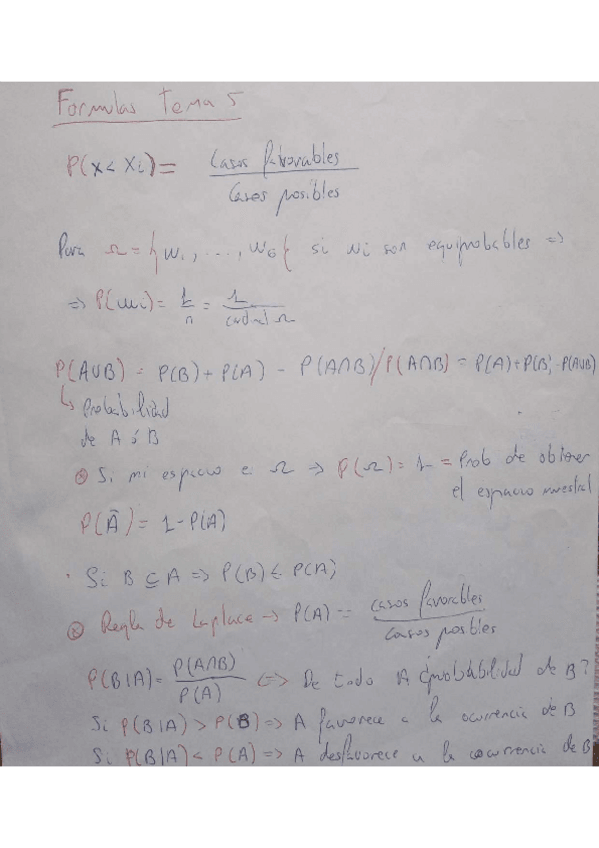 Formulas tema 5
P(x < xi) = Casos favorables / Casos posibles
Para Ω = {w1, ..., w6} si wi son equiprobables =>
=> P(wi) = 1/n = 1/cardinal Ω
P(A∪B) = P(B) + P(A) - P(A∩B) / P(A∩B) = P(A) + P(B) - P(A∪B)
↳ Probabilidad
de A ó B
⊗ Si mi espacio e Ω => P(Ω) = 1 = Prob de obtener
el espacio muestral
P(Ā) = 1 - P(A)
· Si B ⊆ A => P(B) ≤ P(A)
⊗ Regla de Laplace -> P(A) = casos favorables / casos posibles
P(B|A) = P(A∩B) / P(A) <=> De todo A ¿probabilidad de B?
Si P(B|A) > P(B) => A favorece a la ocurrencia de B
Si P(B|A) < P(A) => A desfavorece a la ocurrencia de B